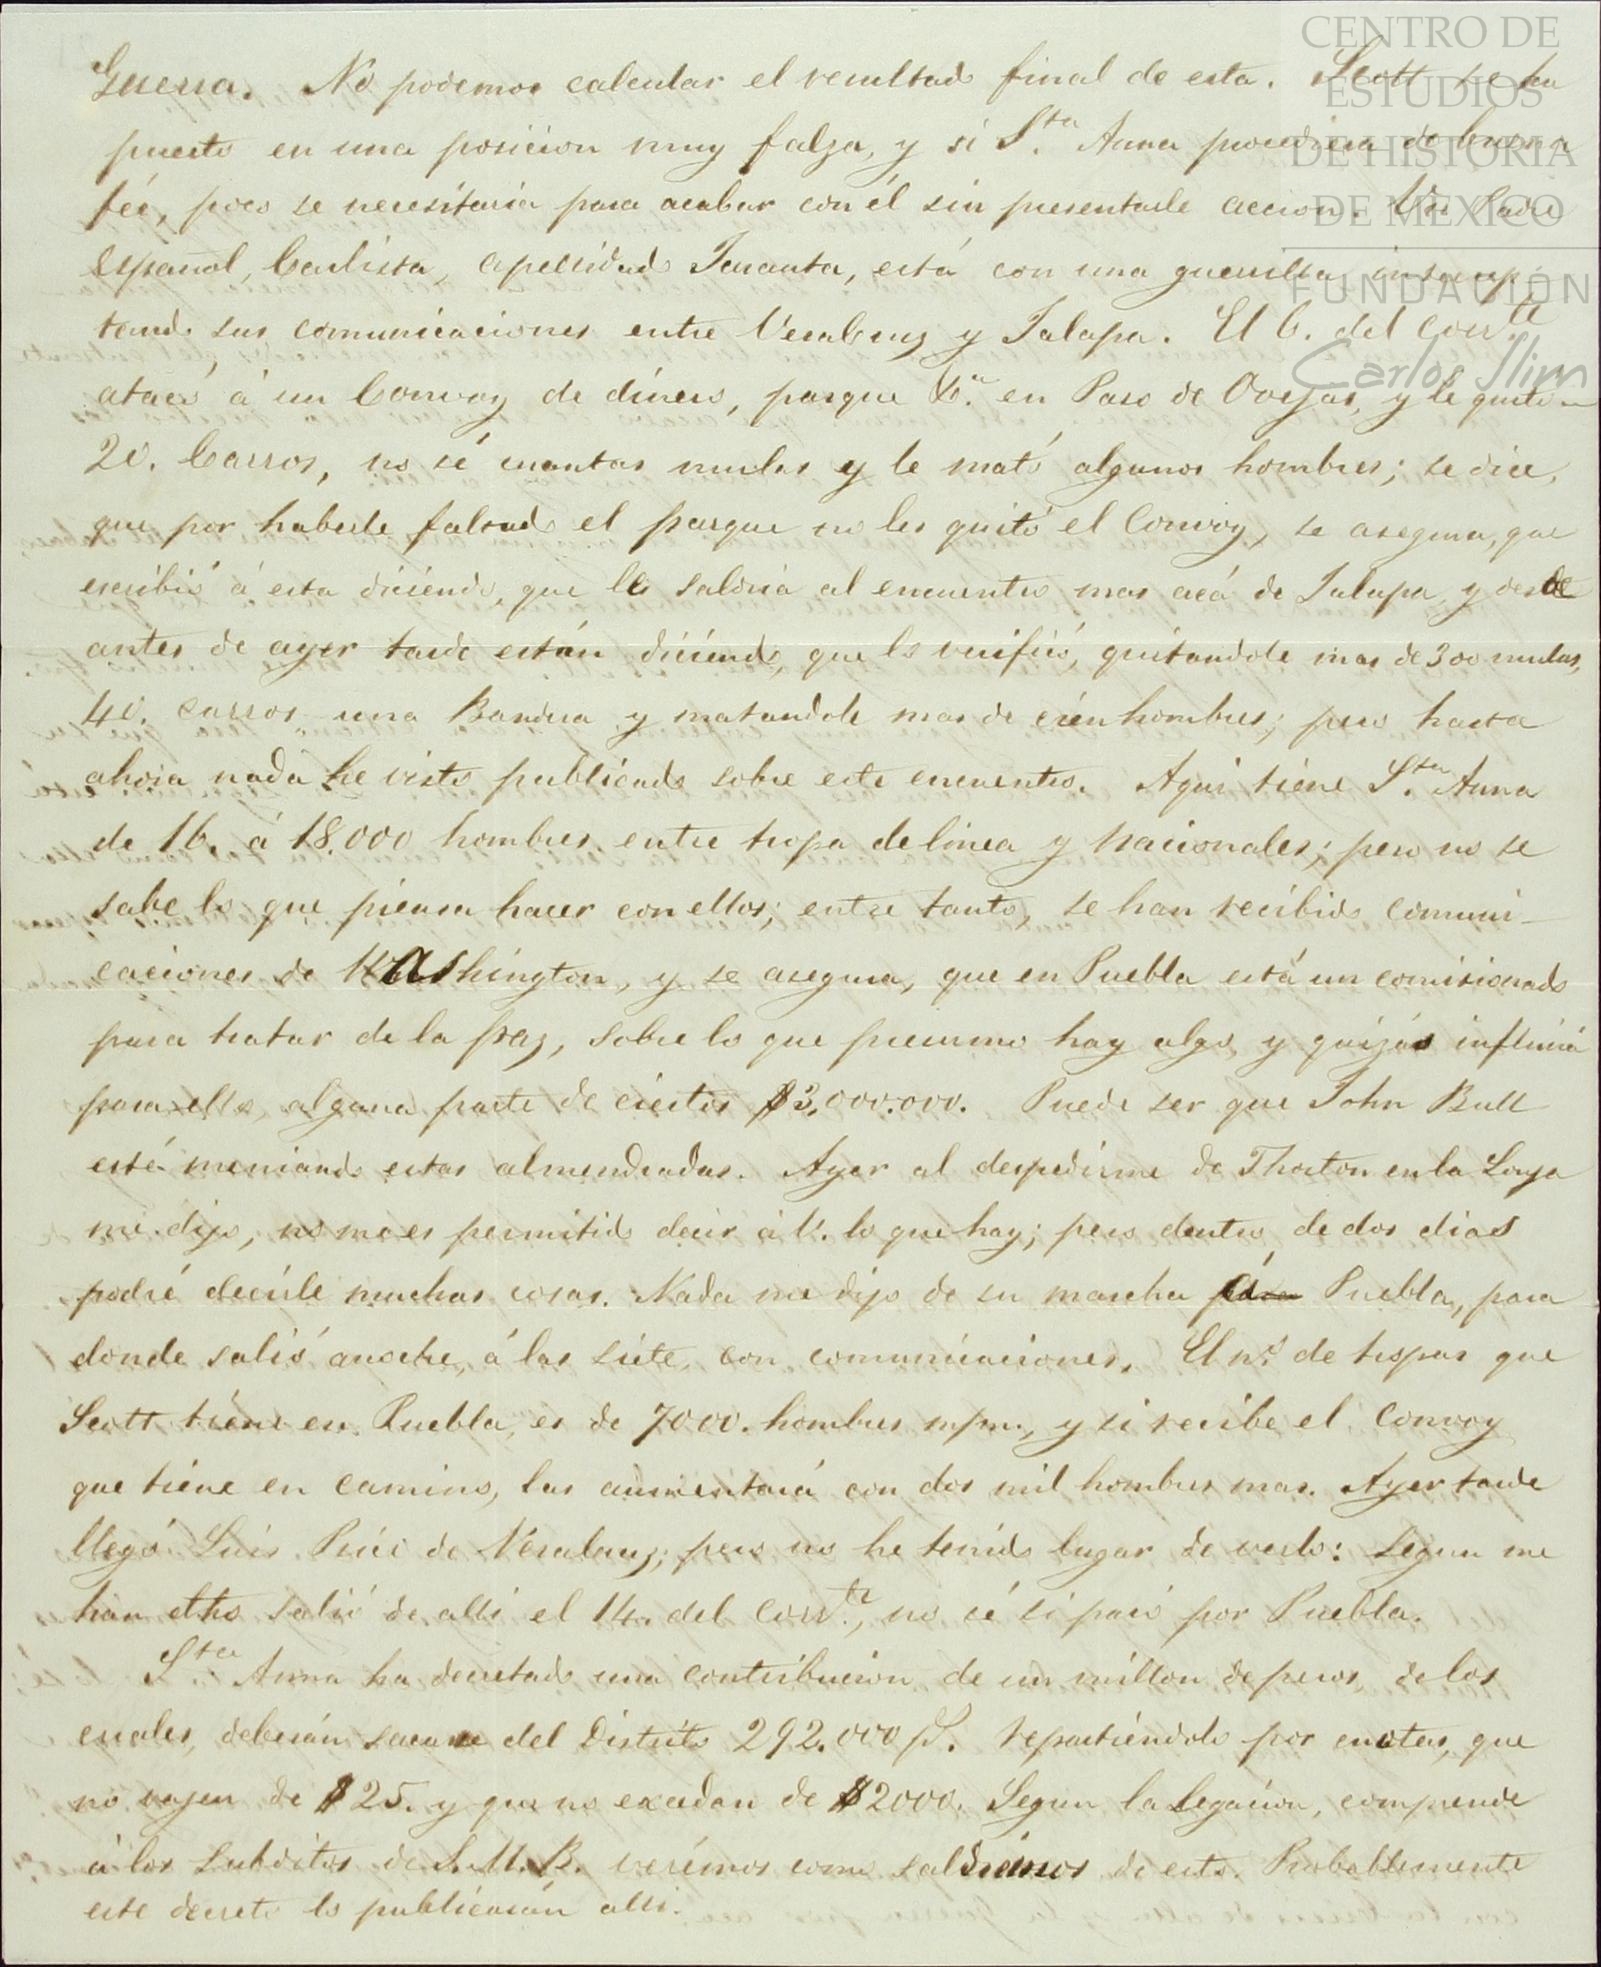 CENTRO DE
ESTUDIOS
DE HISTORIA
DE MEXICO
FUNDACIÓN
Carlos Slim
Guerra. No podemos calcular el resultado final de esta. Scott se ha
puesto en una posicion muy falza, y si S.ta Anna procediera de buena
fée, poco se necesitaria para acabar con él sin presentarle accion. Un Padre
Español, Carlista, apellidado Jarauta, está con una guerrilla interrup-
tando sus comunicaciones entre VeraCruz y Jalapa. El 6. del corr.te
atacó á un Convoy de dinero, parque &.a en Paso de Ovejas, y le quitó
20. Carros, no sé cuantas mulas y le mató algunos hombres; se dice,
que por haberle faltado el parque no les quitó el Convoy, se asegura, que
escribió á esta diciendo, que les saldria al encuentro mas acá de Jalapa, y desde
antes de ayer tarde están diciendo, que lo verificó, quitandole mas de 300 mulas,
40. carros una Bandera y matandole mas de cien hombres; pero hasta
ahora nada he visto publicado sobre este encuentro. Aqui tiene S.ta Anna
de 16. á 18.000 hombres entre tropa de linea y Nacionales; pero no se
sabe lo que piensa hacer con ellos; entre tanto, se han recibido comuni-
caciones de Washington, y se asegura, que en Puebla está un comisionado
para tratar de la paz, sobre lo que presumo hay algo, y quizás influirá
para ello, alguna parte de ciertos $3,000.000. Puede ser que John Bull
esté meniando estas almendradas. Ayer al despedirme de Thorton en la Lonja
me dijo, no me es permitido decir á V. lo que hay; pero dentro de dos dias
podré decirle muchas cosas. Nada me dijo de su marcha á Puebla, para
donde salió anoche, á las siete, con comunicaciones. El n.o de tropas que
Scott tiene en Puebla, es de 7000. hombres m/m., y si recibe el Convoy
que tiene en camino, las aumentará con dos mil hombres mas. Ayer tarde
llegó Luis Prici de VeraCruz; pero no he tenido lugar de verlo: segun me
han dho salió de alli el 14. del corr.te, no sé si pasó por Puebla.
S.ta Anna ha decretado una contribucion de un millon de pesos, de los
cuales, deberán sacarse del Distrito 292.000 p.s repartiéndolo por cuotas, que
no vajen de $25. y que no excedan de $2000. Segun la Legacion, comprende
á los subditos de S.M.B. verémos como saldrémos de esto. Probablemente
este decreto lo publicarán alli.